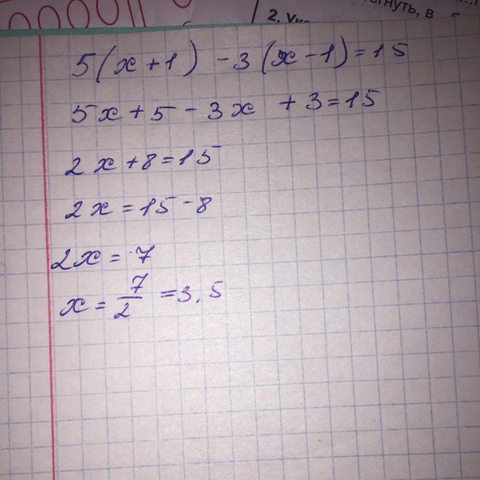 2. У
гнуть, в
5(x+1) -3(x-1)=15
5x+5-3x +3=15
2x+8=15
2x=15-8
2x=7
x=7/2=3.5